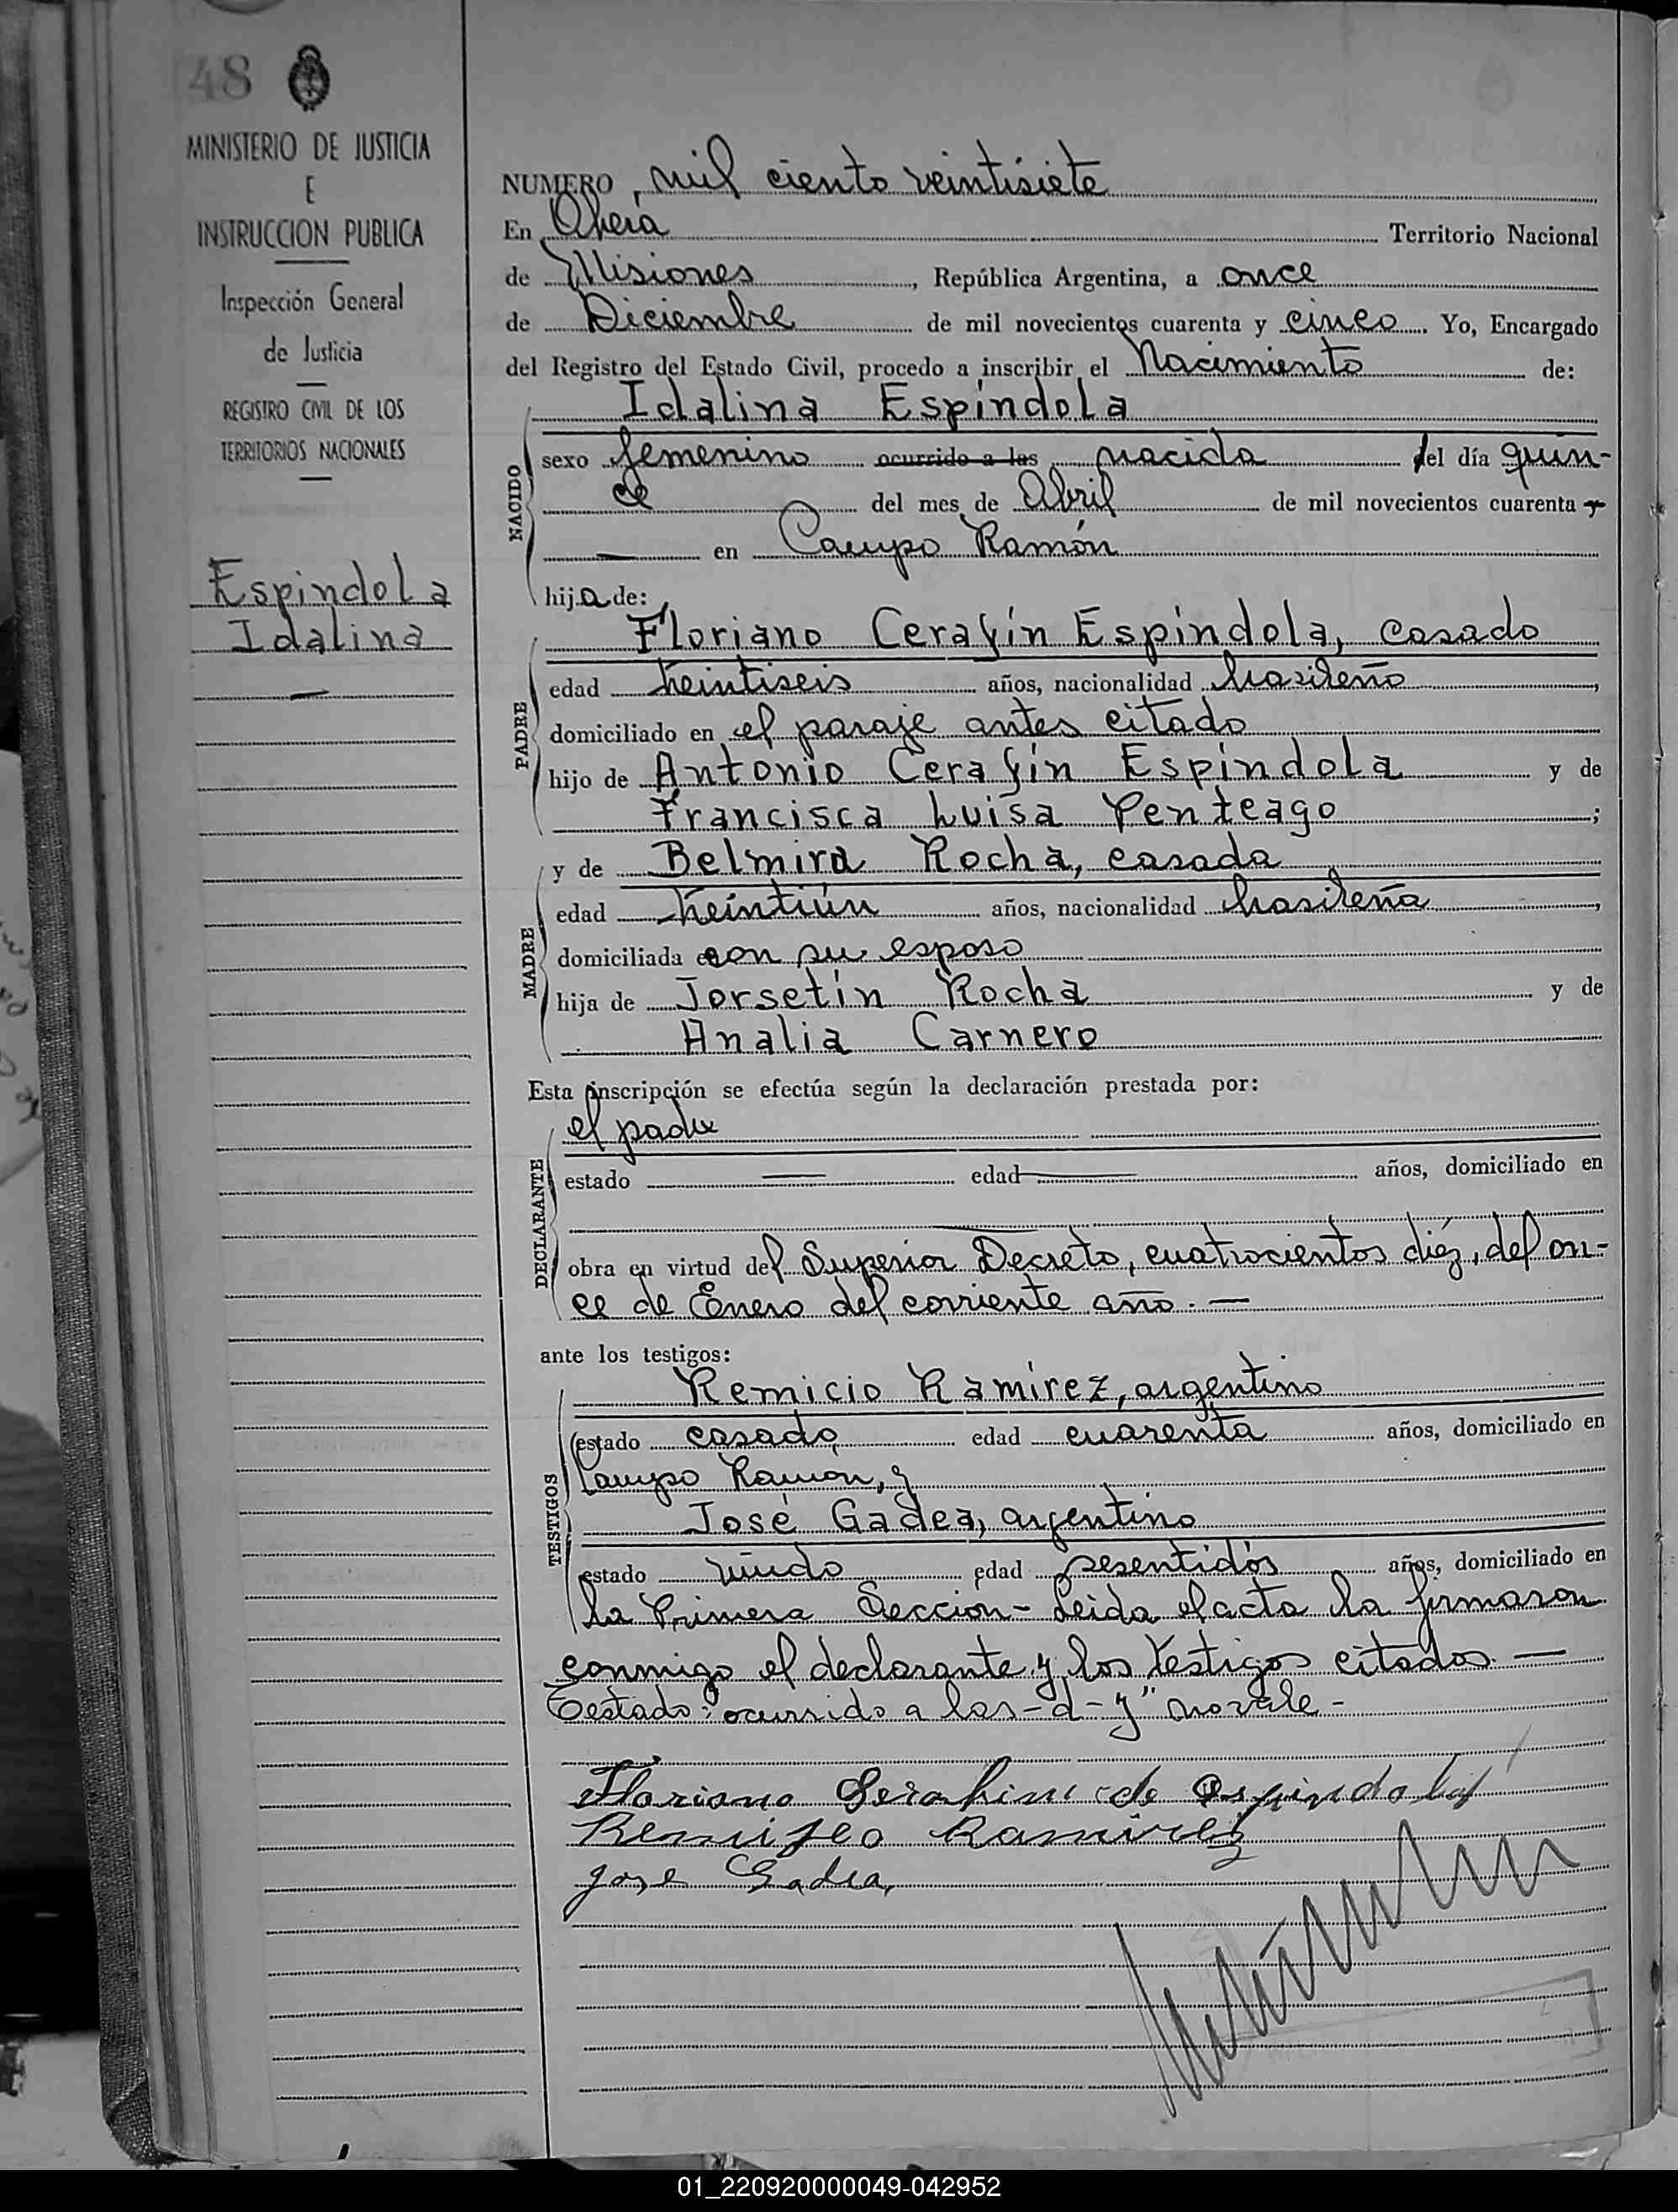 48
MINISTERIO DE JUSTICIA
E
INSTRUCCION PUBLICA
Inspección General
de Justicia
REGISTRO CIVIL DE LOS
TERRITORIOS NACIONALES
Espíndola
Idalina
NUMERO, mil ciento veintisiete
En Oberá Territorio Nacional
de Misiones, República Argentina, a once
de Diciembre de mil novecientos cuarenta y cinco. Yo, Encargado
del Registro del Estado Civil, procedo a inscribir el Nacimiento de:
Idalina Espíndola
NACIDO
sexo femenino ocurrido a las nacida del día quin-
ce del mes de Abril de mil novecientos cuarenta y
— en Campo Ramón
hija de:
PADRE
Floriano Cerafín Espíndola, casado
edad veintiseis años, nacionalidad brasileño,
domiciliado en el paraje antes citado
hijo de Antonio Cerafín Espíndola y de
Francisca Luisa Penteago;
MADRE
y de Belmira Rocha, casada
edad veintiún años, nacionalidad brasileña,
domiciliada con su esposo
hija de Jorsetín Rocha y de
Analia Carnero
Esta inscripción se efectúa según la declaración prestada por:
DECLARANTE
el padre
estado — edad — años, domiciliado en
obra en virtud del Superior Decreto, cuatrocientos diéz, del on-
ce de Enero del corriente año. —
ante los testigos:
TESTIGOS
Remicio Ramírez, argentino
estado casado edad cuarenta años, domiciliado en
Campo Ramón, y
José Gadea, argentino
estado viudo edad sesentidós años, domiciliado en
la Primera Seccion - Leida el acta la firmaron
conmigo el declarante y los testigos citados. —
Testado: "ocurrido a las - d - y" no vale -
Floriano Serafim de Espindola
Remijeo Ramirez
Jose Gadea,
01_220920000049-042952